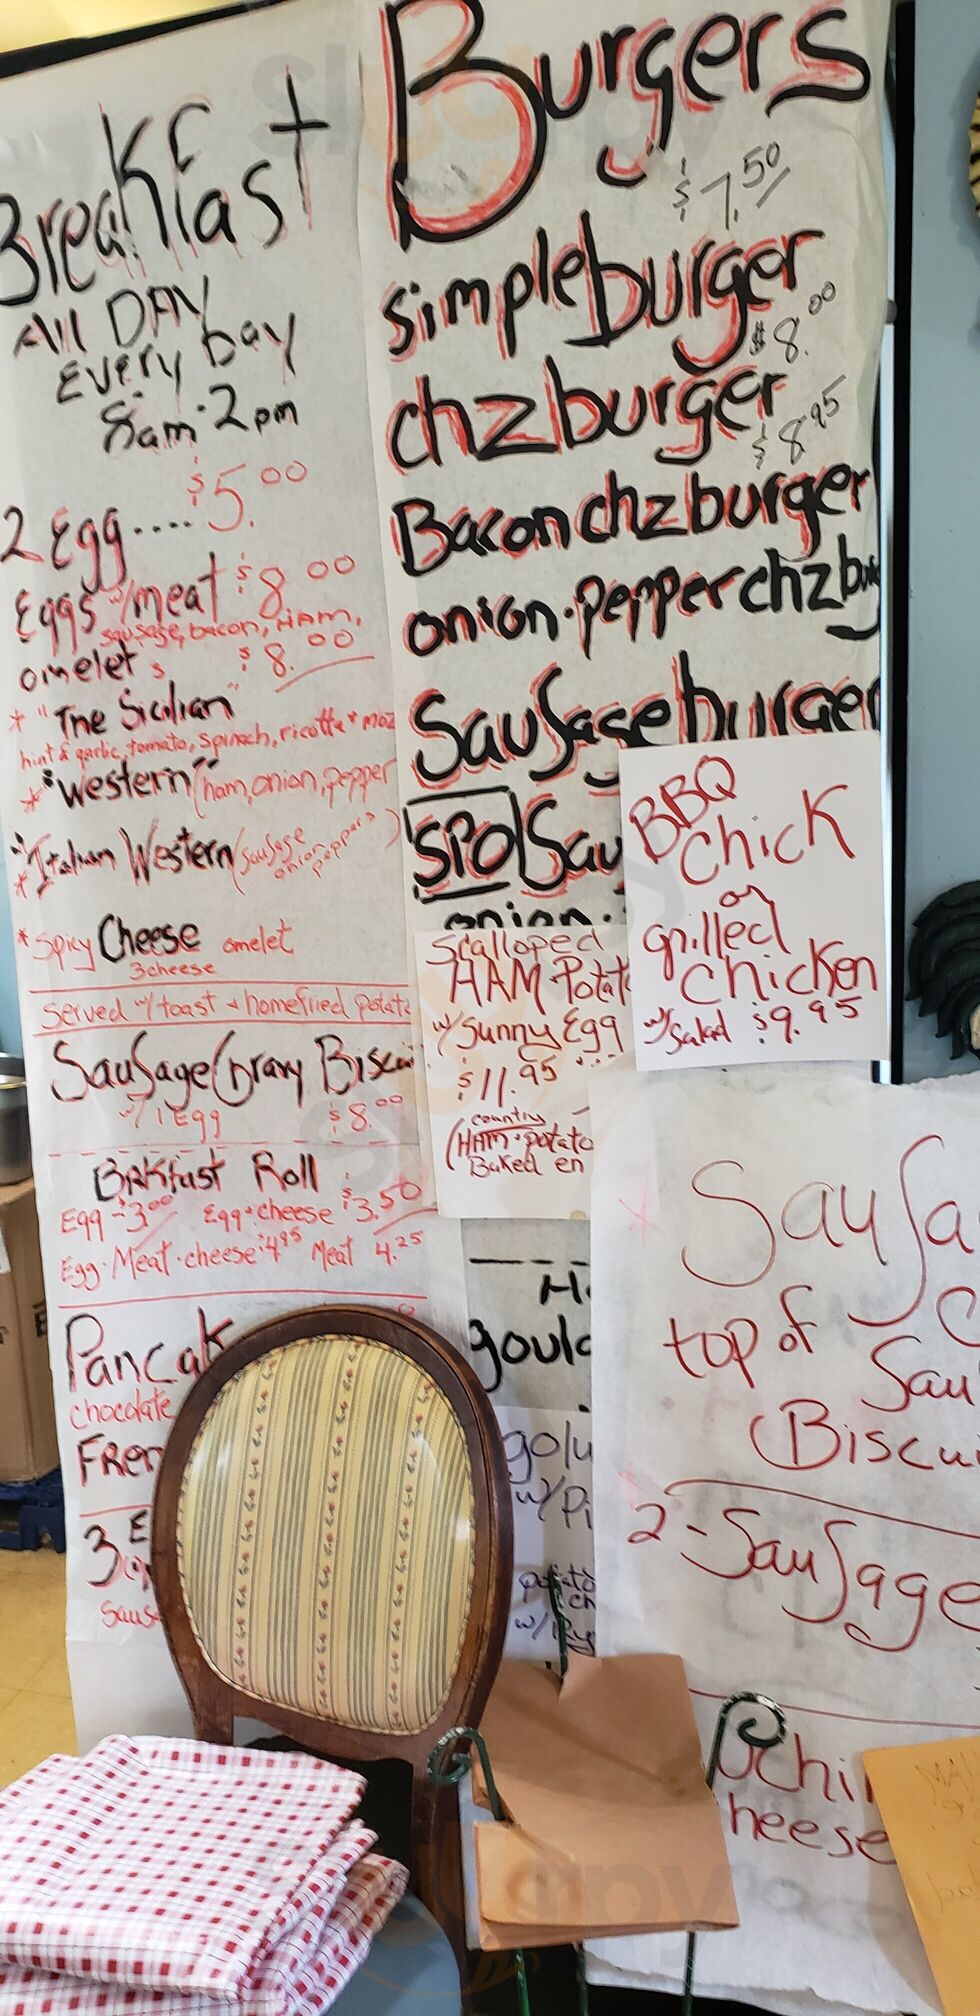 Breakfast
All DAY
Every Day
8am-2pm
2 Egg.... $5.00
Eggs w/meat $8.00
sausage, bacon, HAM,
omelet s $8.00
* "The Sicilian"
hint & garlic, tomato, spinach, ricotta + moz
* "Western" (ham, onion, pepper
* Italian Western (sausage
onion
peppers)
* Spicy Cheese omelet
3 cheese
Served w/ toast + homefried potato
Sausage Gravy Biscui
w/ 1 Egg $8.00
BrKfast Roll
Egg - $3.00 Egg + cheese $3.50
Egg. Meat. cheese: 4.95 Meat 4.25
PancaK
chocolate
Fren
3
saus
Burgers
$7.50
simpleburger
$8.00
chzburger
$8.95
Bacon chzburger
onion.pepper chzbu
Sausage burger
SPO Sau
onion.
Scalloped
HAM Potat
w/ Sunny Egg
$11.95
country
(HAM + potato
Baked en
BBQ
chicK
or
grilled
ChicKen
w/ Salad $9.95
gould
golu
w/Pi
potato
ch
w/
Sausa
top of
Sau
(Biscui
2 - Sausage
heese